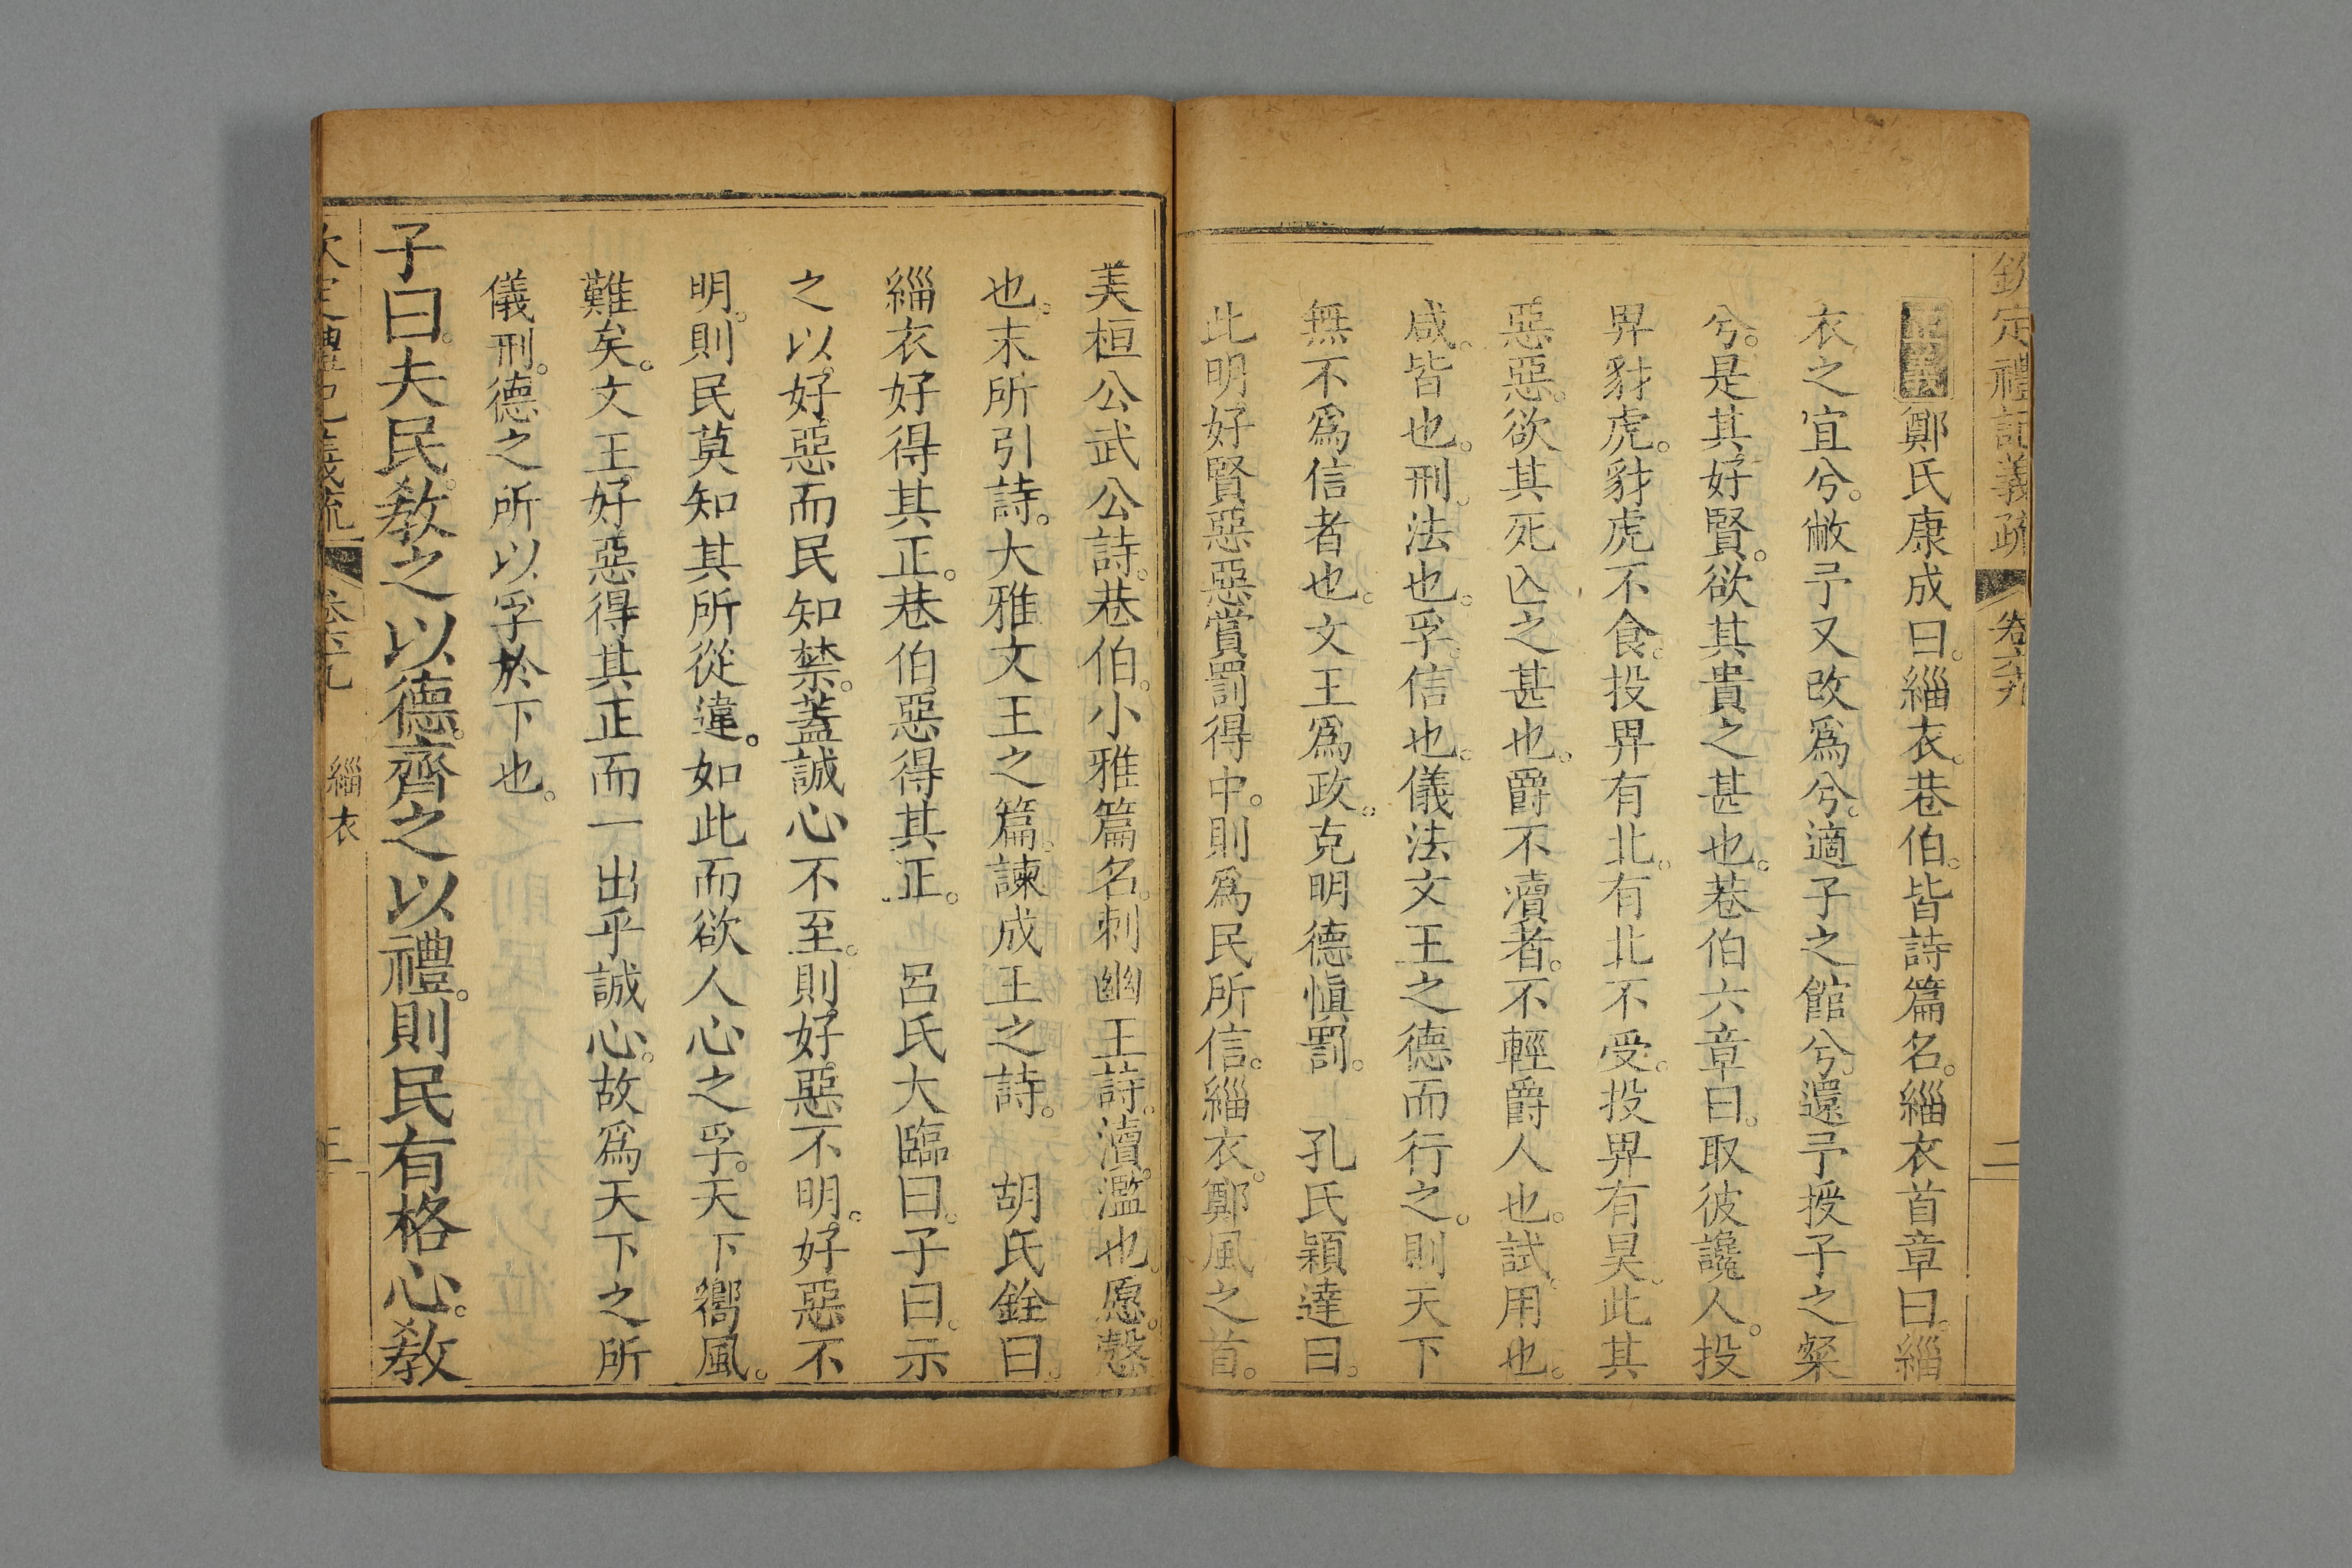 欽定禮記義疏 卷六十九 二
正義鄭氏康成曰。緇衣。巷伯。皆詩篇名。緇衣首章曰。緇
衣之宜兮。敝予又改爲兮。適子之館兮。還予授子之粲
兮。是其好賢。欲其貴之甚也。巷伯六章曰。取彼讒人。投
畀豺虎。豺虎不食。投畀有北。有北不受。投畀有昊。此其
惡惡。欲其死亡之甚也。爵不瀆者。不輕爵人也。試用也。
咸。皆也。刑。法也。孚。信也。儀法文王之德而行之。則天下
無不爲信者也。文王爲政。克明德愼罰。 孔氏穎達曰。
此明好賢惡惡賞罰得中。則爲民所信。緇衣。鄭風之首。
美桓公武公詩。巷伯。小雅篇名。刺幽王詩。瀆。濫也。愿。慤
也。末所引詩。大雅文王之篇。諫成王之詩。 胡氏銓曰。
緇衣好得其正。巷伯惡得其正。 呂氏大臨曰。子曰。示
之以好惡而民知禁。蓋誠心不至。則好惡不明。好惡不
明。則民莫知其所從違。如此而欲人心之孚。天下嚮風。
難矣。文王好惡得其正而一出乎誠心。故爲天下之所
儀刑。德之所以孚於下也。
子曰。夫民。敎之以德。齊之以禮。則民有格心。敎
欽定禮記義疏 卷六十九 緇衣 三